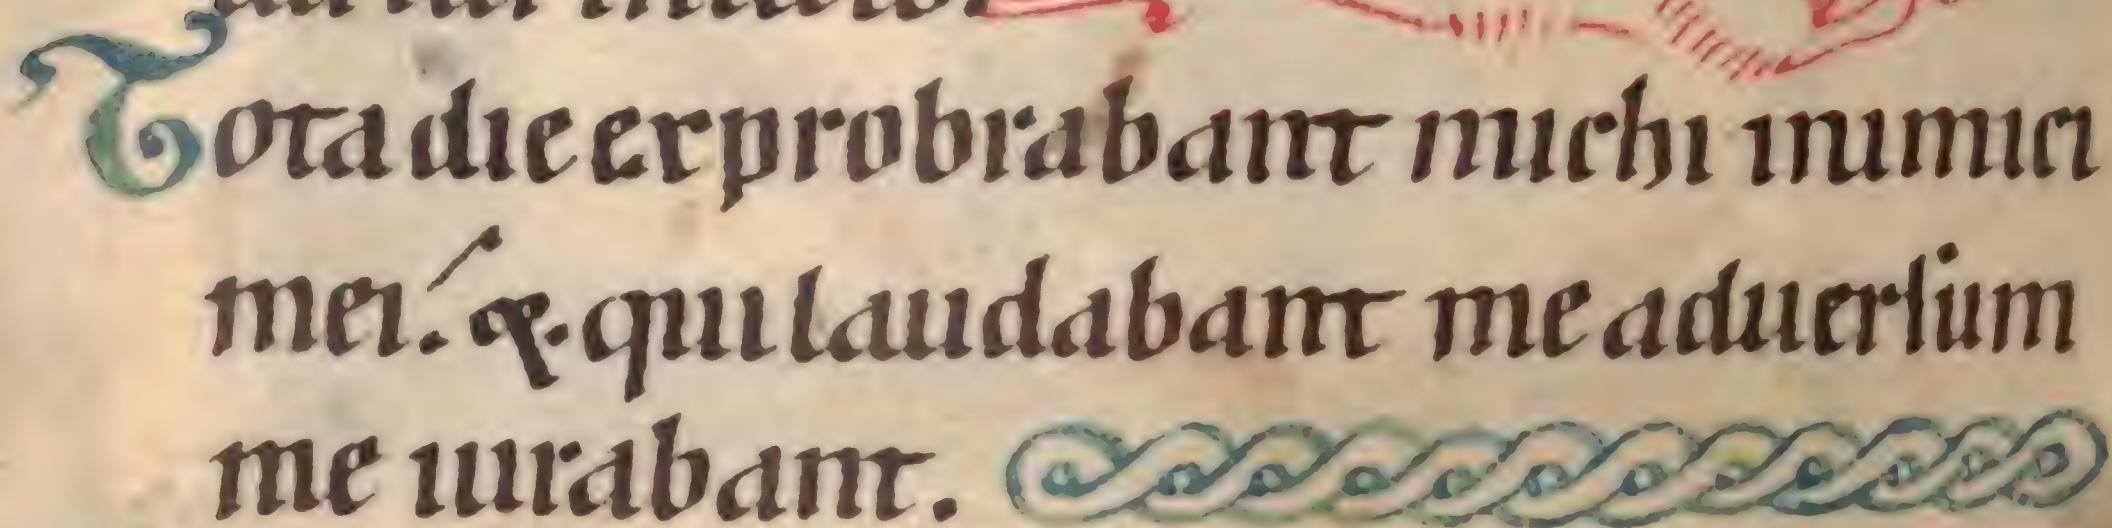 Tota die exprobrabant michi inimici
mei. & qui laudabant me aduersum
me iurabant.